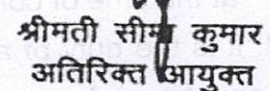 श्रीमती सीमा कुमार
अतिरिक्त आयुक्त